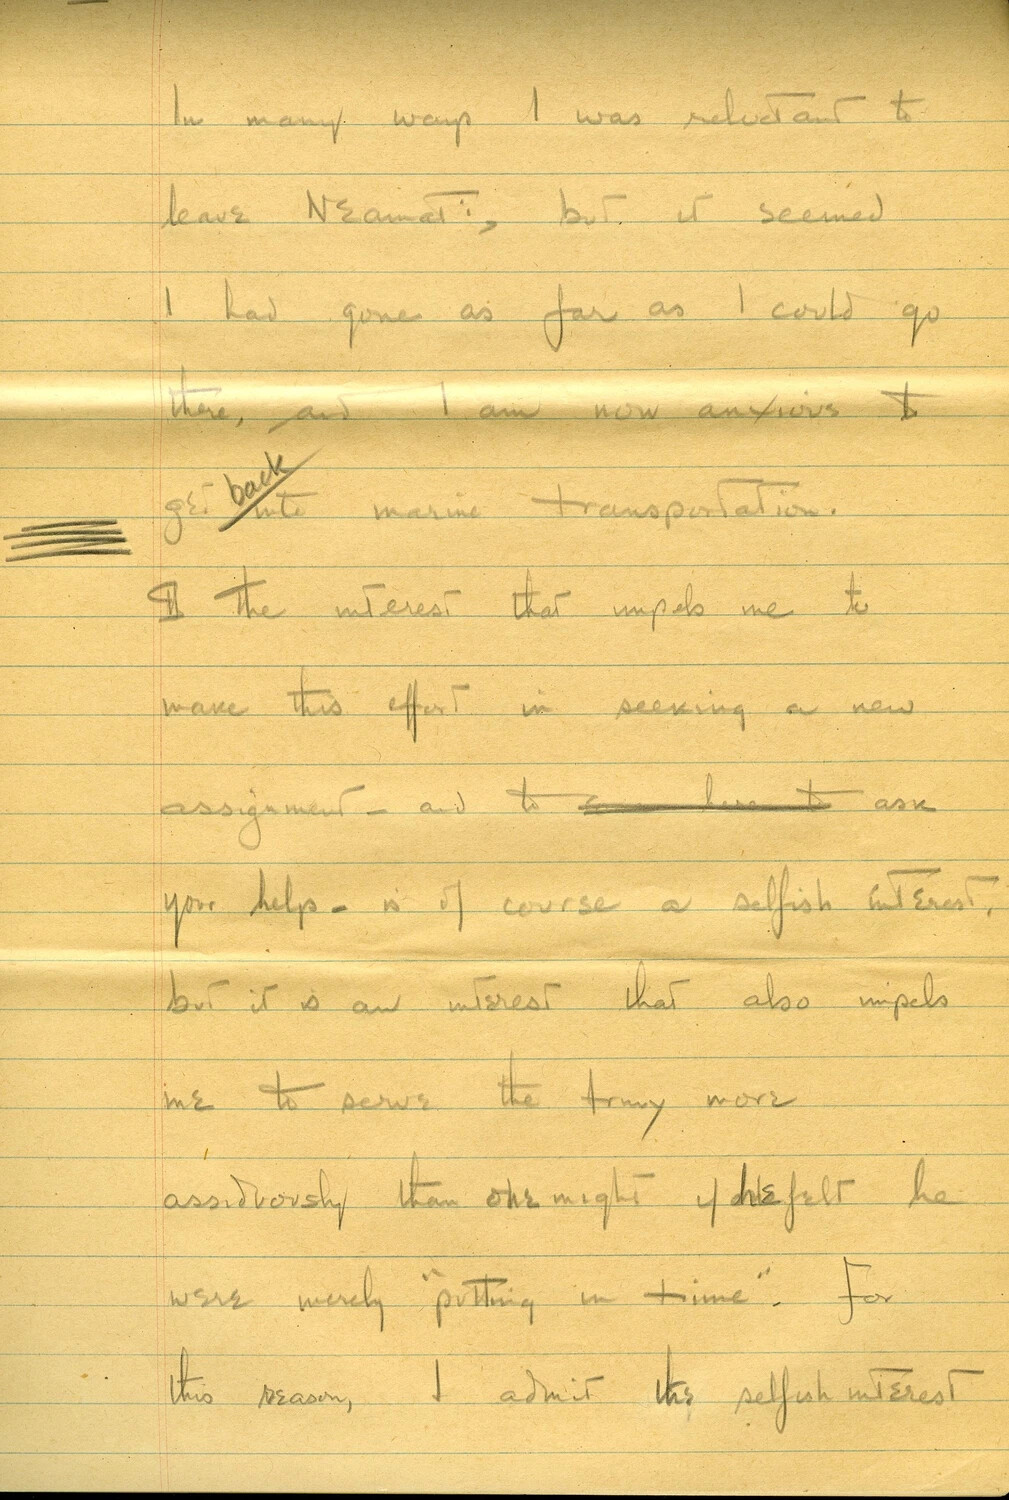 In many ways I was reluctant to
leave Neamati, but it seemed
I had gone as far as I could go
there, and I am now anxious to
get back into marine transportation.
The interest that impels me to
make this effort in seeking a new
assignment - and to ask
your help - is of course a selfish interest,
but it is an interest that also impels
me to serve the Army more
assiduously than one might if he felt he
were merely "putting in time". For
this reason, I admit the selfish interest